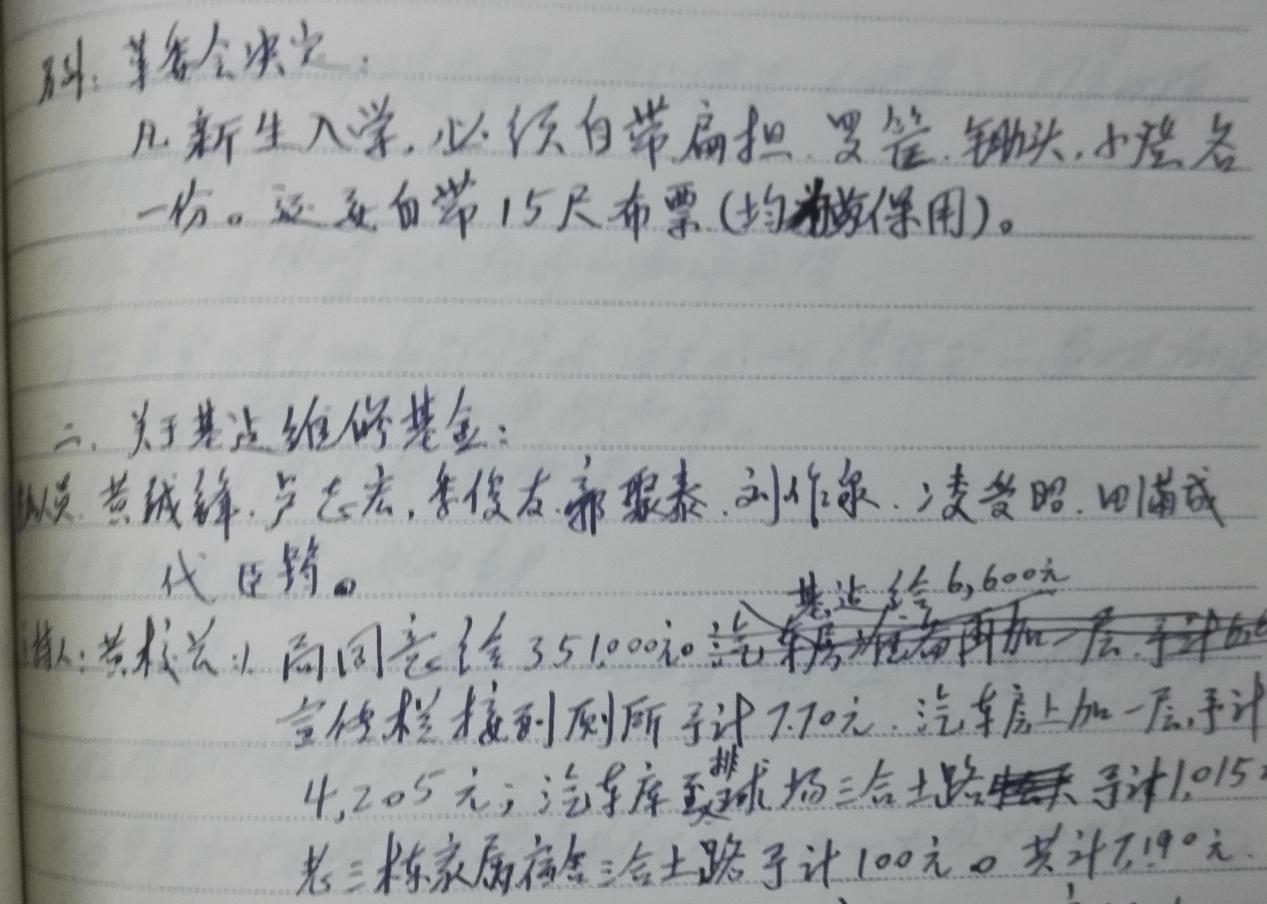 另外：革委会决定：
凡新生入学，必须自带扁担、罗筐、锄头、小凳各
一份。还要自带15尺布票（均劳保用）。
二、关于基建维修基金：
员：黄绒锋、卢志宏、李俊友、郭聚泰、刘作泉、凌受照、田满成
代臣骑。
基建给6,600元
主持人：黄校长：1、局同意给351,000元。汽车房准备再加一层，予计
宣传栏接到厕所予计770元。汽车房上加一层，予计
4,205元；汽车库至排球场三合土路予计1,015
老三栋家属宿舍三合土路予计100元。共计7,190元.